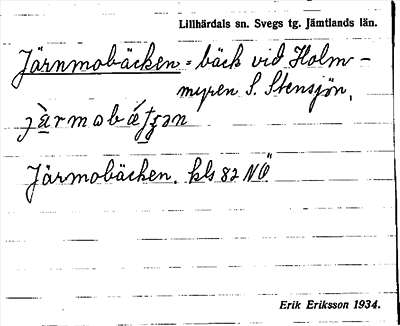 Lillhärdals sn. Svegs tg. Jämtlands län.
Järnmobäcken = bäck vid Holm-
myren S. Stensjön,
Järmobäcken. kls 82 NÖ
Erik Eriksson 1934.